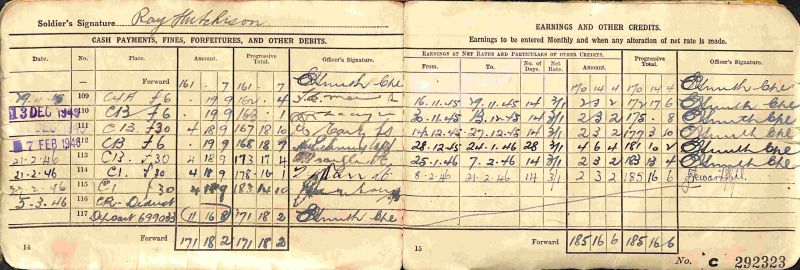 Soldier's Signature Ray Hutchison
CASH PAYMENTS, FINES, FORFEITURES, AND OTHER DEBITS.
Date. No. Place. Amount. Progressive Total. Officer's Signature.
Forward 161 7 161 7
29.11.45 109 £6 19 9 162 4
13 DEC 1945 110 C13 £6 19 9 163 1
111 C13 £30 4 18 9 167 18 10
7 FEB 1946 112 C13 £6 19 9 168 18 7
21-2-46 113 C13 £30 4 18 9 173 17 4
21-2-46 114 C1 £30 4 18 9 178 16 1
115 C1 £30 4 18 9 183 14 10
5-3-46 116 CR- Deduct
117 Deposit 699083 11 16 8 171 18 2
14 Forward 171 18 2 171 18 2
EARNINGS AND OTHER CREDITS.
Earnings to be entered Monthly and when any alteration of net rate is made.
EARNINGS AT NET RATES AND PARTICULARS OF OTHER CREDITS.
From. To. No. of Days. Net Rate. Amount. Progressive Total. Officer's Signature.
170 14 4 170 14 4
16.11.45 29.11.45 14 3/1 2 3 2 172 17 6
30.11.45 13.12.45 14 3/1 2 3 2 175 8
14.12.45 27.12.45 14 3/1 2 3 2 177 3 10
28.12.45 24.1.46 28 3/1 4 6 4 181 10 2
25.1.46 7.2.46 14 3/1 2 3 2 183 13 4
8-2-46 21-2-46 14 3/1 2 3 2 185 16 6
15 Forward 185 16 6 185 16 6
No. C 292323